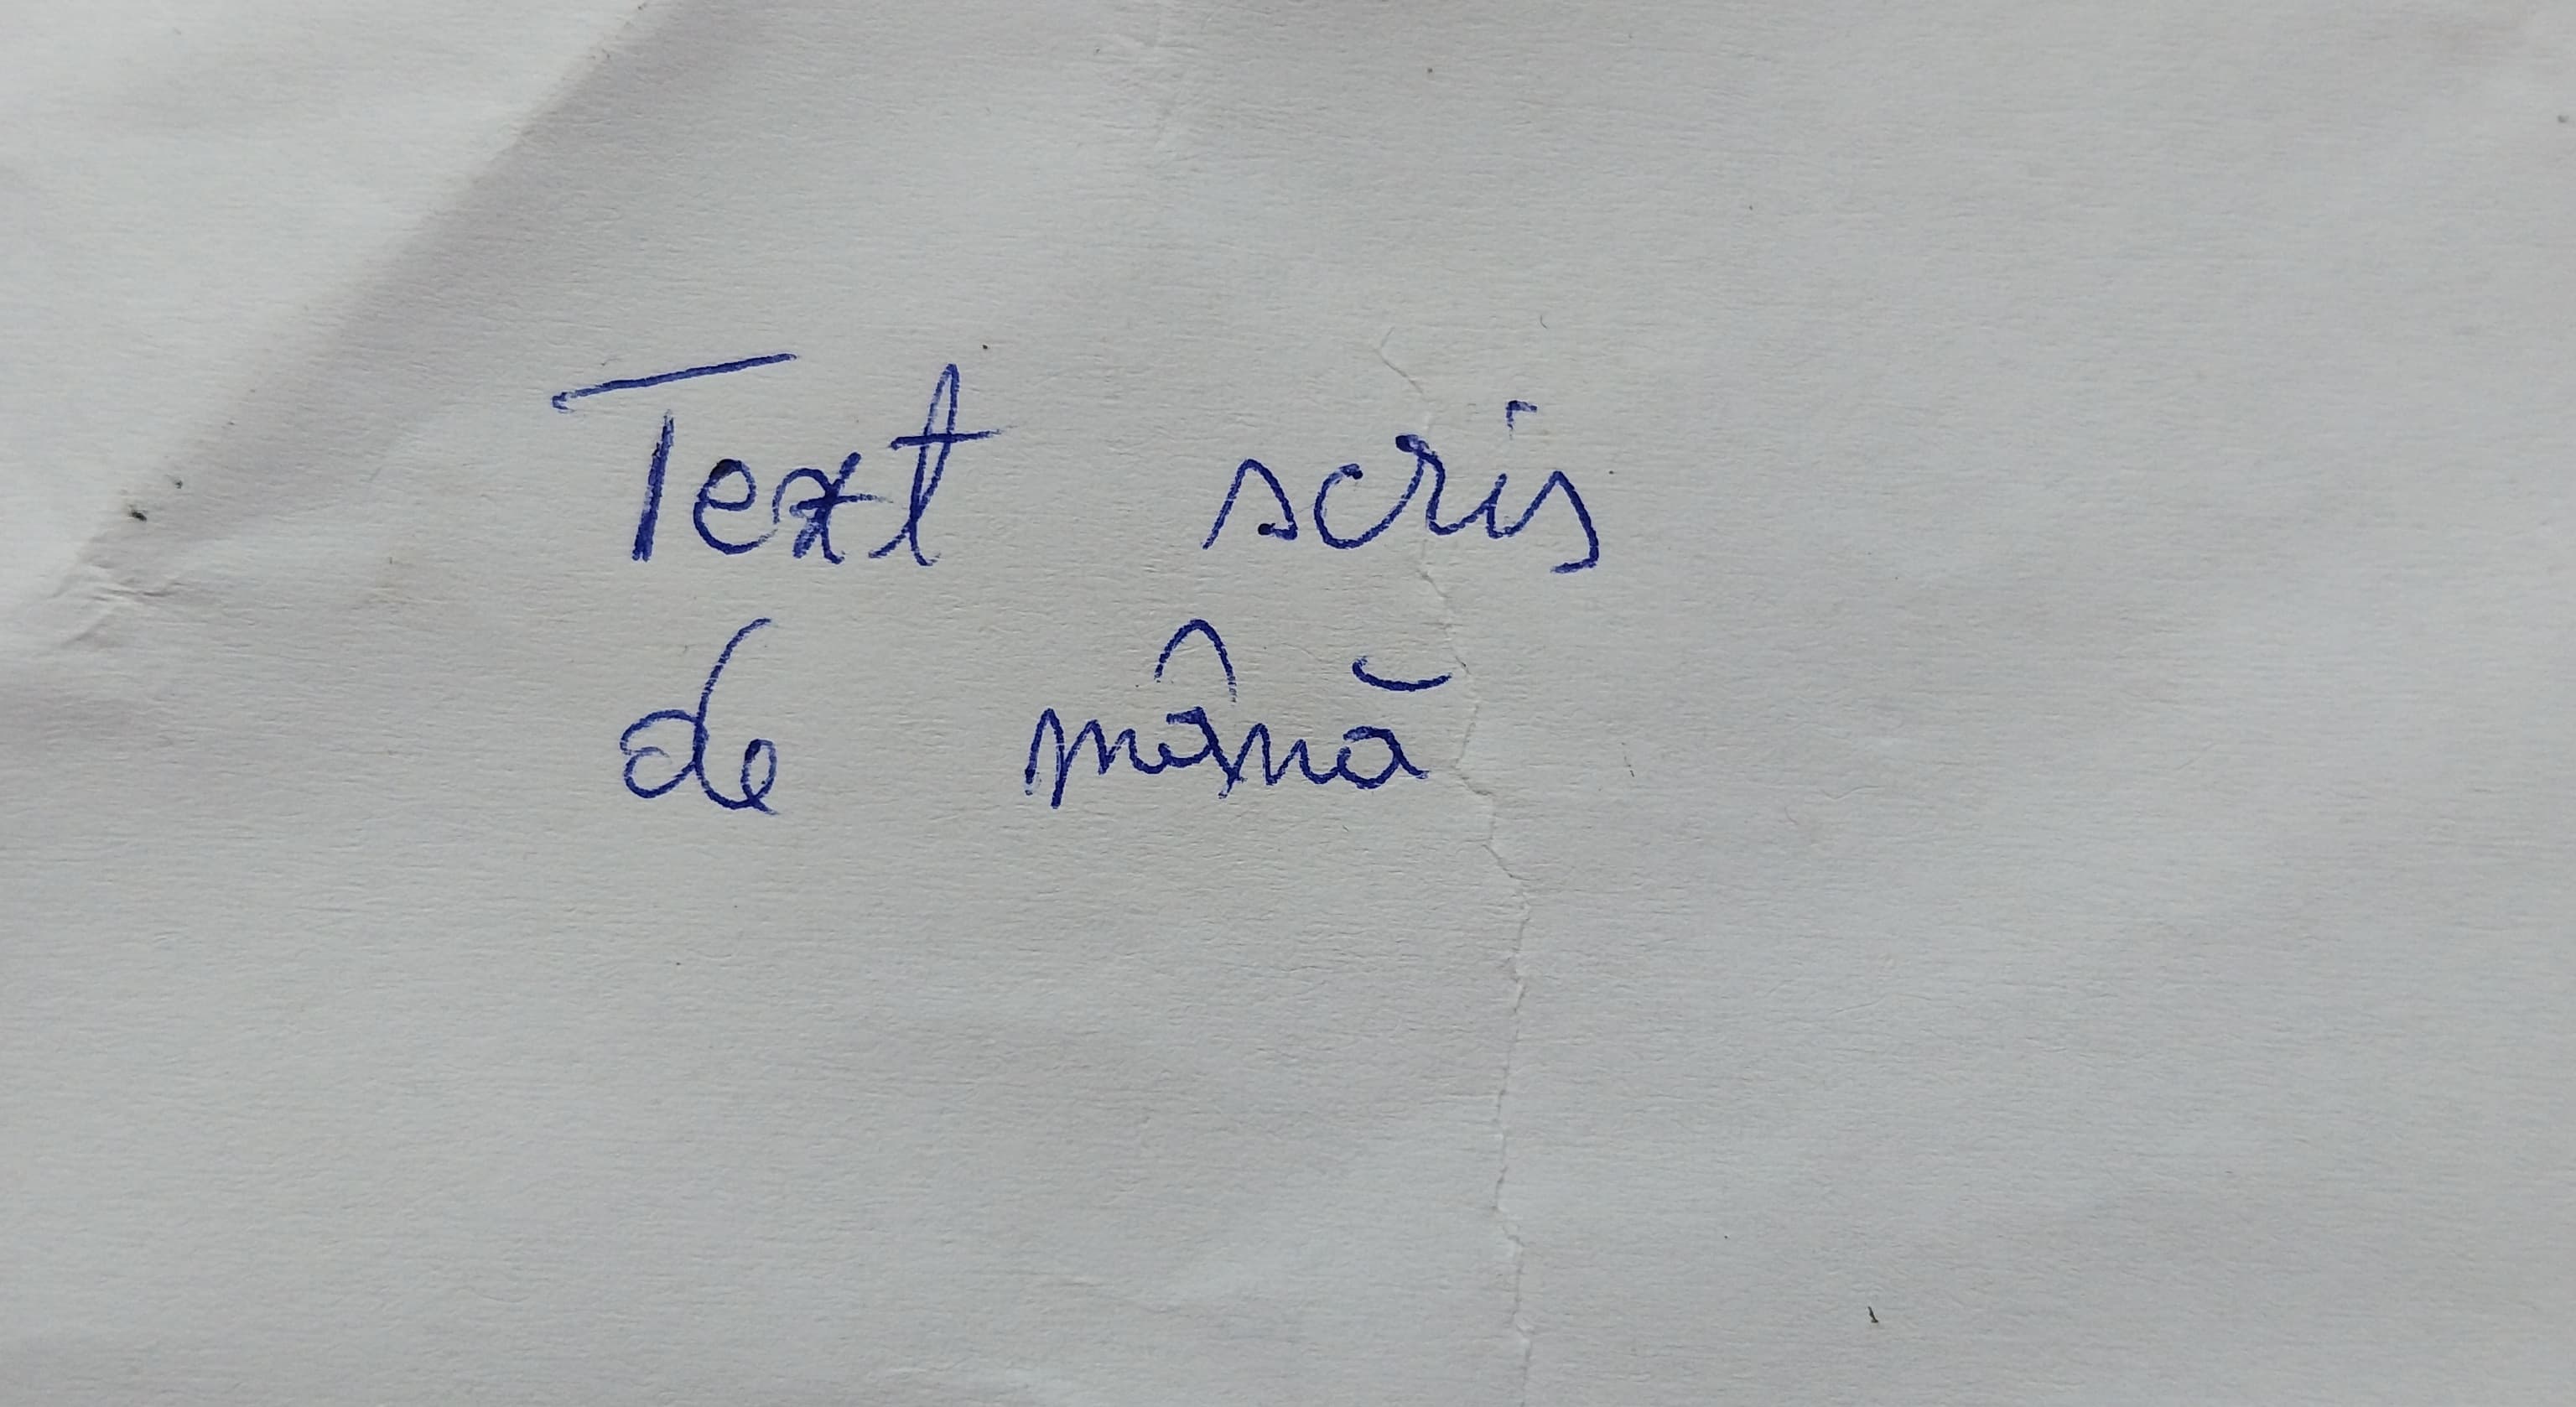 Text scris
de mână